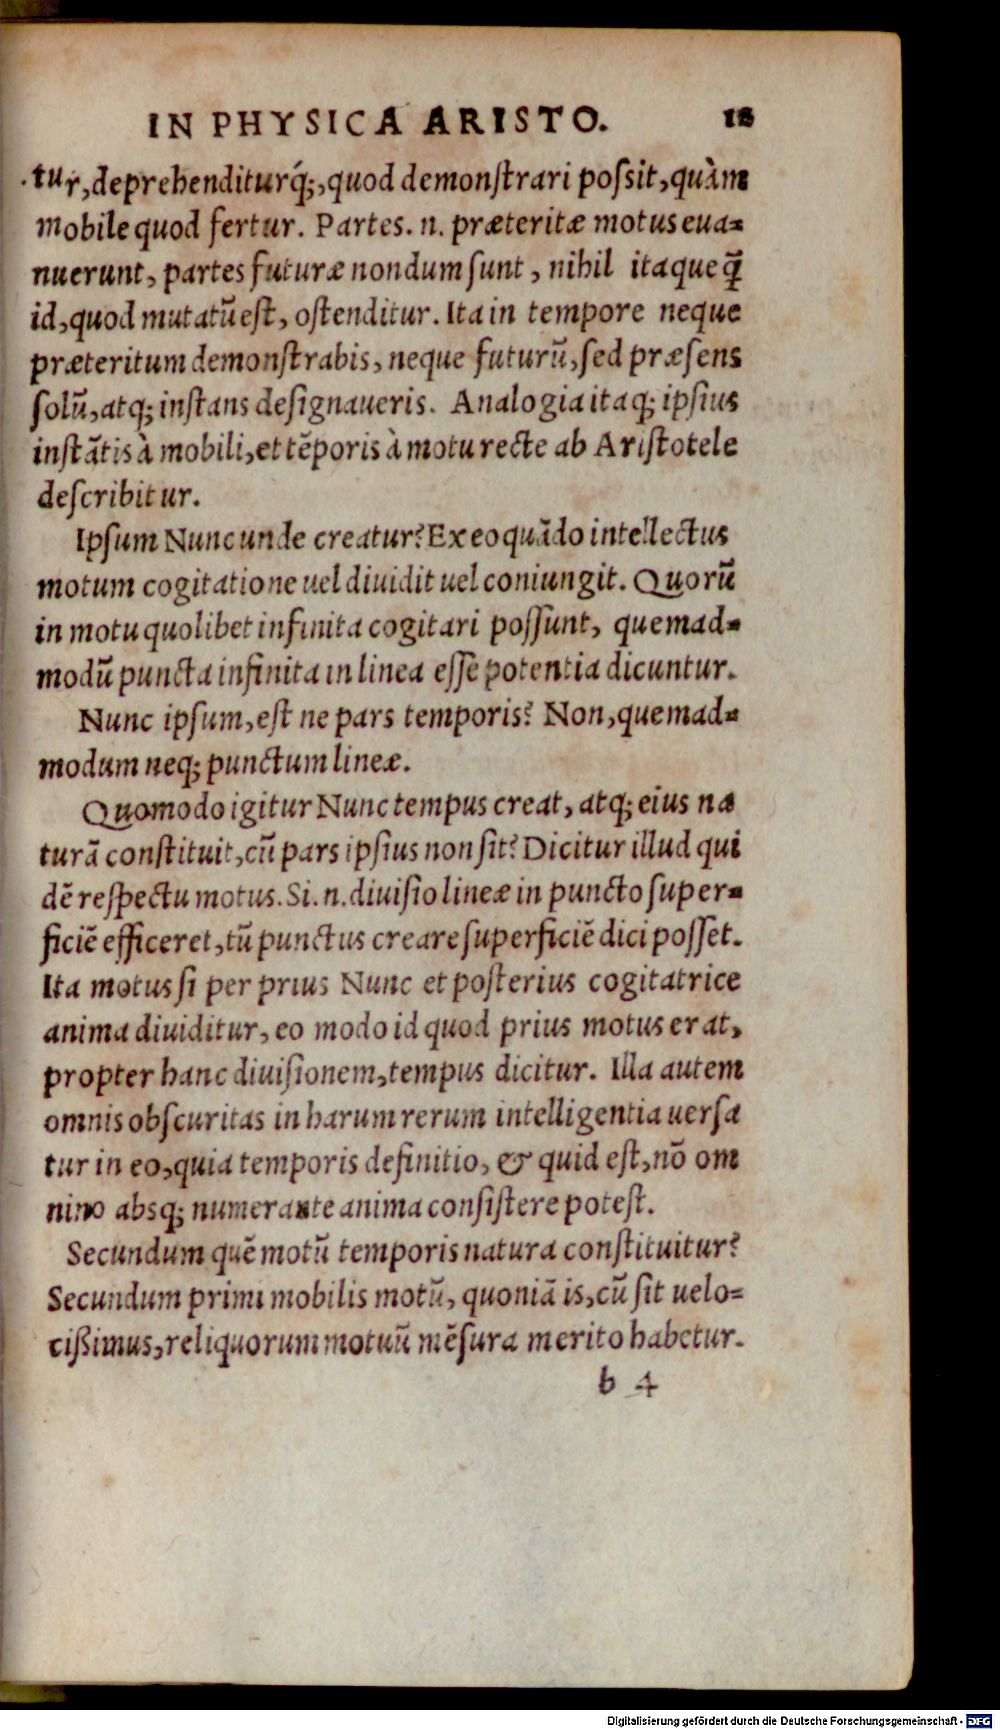 IN PHYSICA ARISTO. 12
tur, deprehenditurq́;, quod demonſtrari poſsit, quàm
mobile quod fertur. Partes. n. præteritæ motus eua-
nuerunt, partes futuræ nondum ſunt, nihil itaque q̃
id, quod mutatũ eſt, oſtenditur. Ita in tempore neque
præteritum demonſtrabis, neque futurũ, ſed præſens
ſolũ, atq; inſtans deſignaueris. Analogia itaq; ipſius
inſtãtis à mobili, et tẽporis à motu recte ab Ariſtotele
deſcribitur.
Ipſum Nunc unde creatur? Ex eo quãdo intellectus
motum cogitatione uel diuidit uel coniungit. Quorũ
in motu quolibet infinita cogitari poſſunt, quemad-
modũ puncta infinita in linea eſſe potentia dicuntur.
Nunc ipſum, eſt ne pars temporis? Non, quemad-
modum neq; punctum lineæ.
Quomodo igitur Nunc tempus creat, atq; eius na
turã conſtituit, cũ pars ipſius non ſit? Dicitur illud qui
dẽ reſpectu motus. Si. n. diuiſio lineæ in puncto ſuper-
ficiẽ efficeret, tũ punctus creare ſuperficiẽ dici poſſet.
Ita motus ſi per prius Nunc et poſterius cogitatrice
anima diuiditur, eo modo id quod prius motus erat,
propter hanc diuiſionem, tempus dicitur. Illa autem
omnis obſcuritas in harum rerum intelligentia uerſa
tur in eo, quia temporis definitio, & quid eſt, nõ om
nino absq; numerante anima conſiſtere poteſt.
Secundum quẽ motũ temporis natura conſtituitur?
Secundum primi mobilis motũ, quoniã is, cũ ſit uelo-
cißimus, reliquorum motuũ mẽſura merito habetur.
b 4
Digitalisierung gefördert durch die Deutsche Forschungsgemeinschaft - DFG